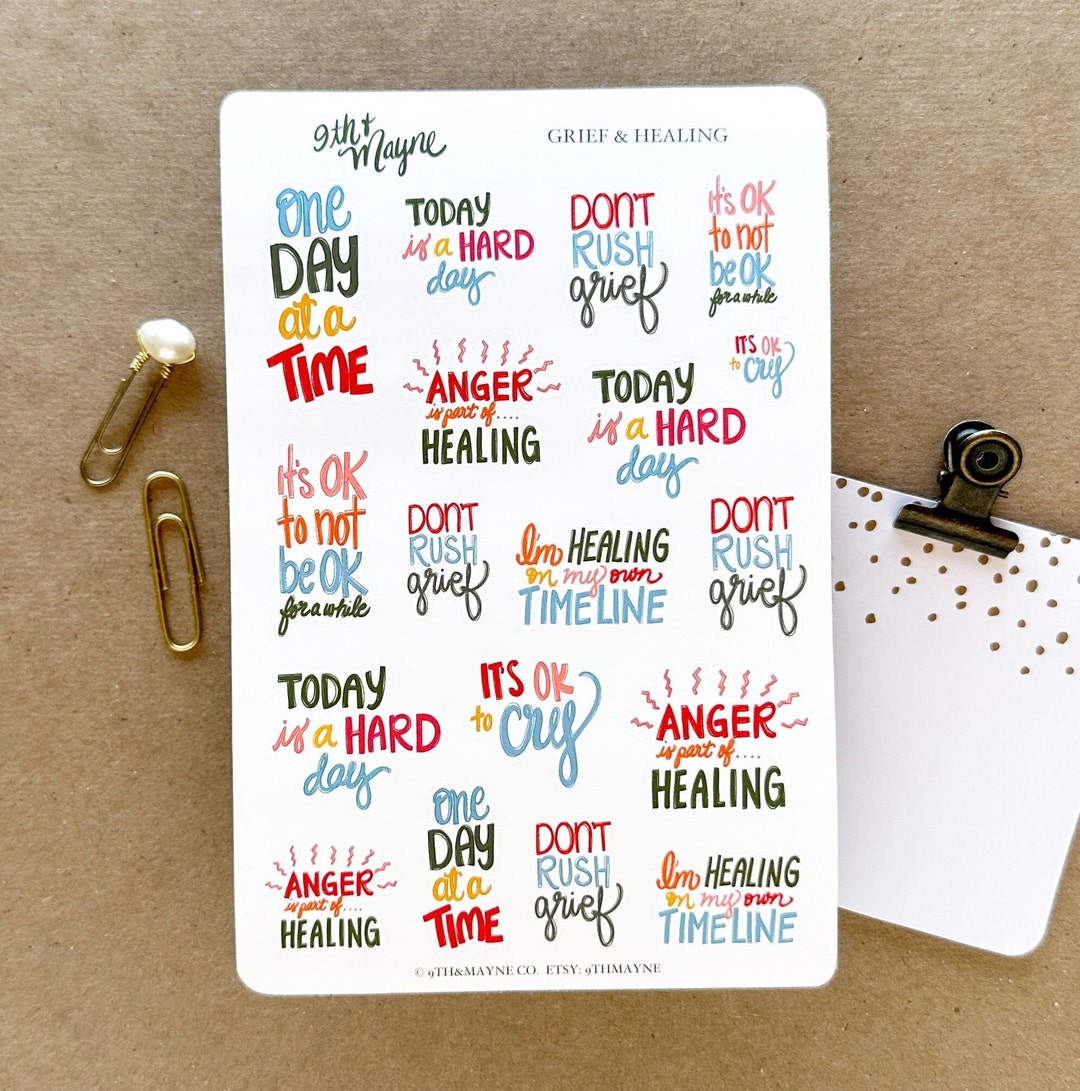 9th +
Mayne
GRIEF & HEALING
One
DAY
at a
TIME
TODAY
is a HARD
day
DON'T
RUSH
grief
it's OK
to not
be OK
for a while
IT'S OK
to cry
ANGER
is part of....
HEALING
TODAY
is a HARD
day
it's OK
to not
be OK
for a while
DON'T
RUSH
grief
I'm HEALING
on my own
TIMELINE
DON'T
RUSH
grief
TODAY
is a HARD
day
IT'S OK
to cry
ANGER
is part of....
HEALING
ANGER
is part of....
HEALING
One
DAY
at a
TIME
DON'T
RUSH
grief
I'm HEALING
on my own
TIMELINE
© 9TH&MAYNE CO. ETSY: 9THMAYNE